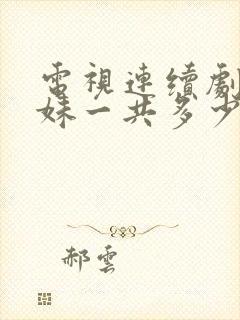 電視連續劇
妹一共多少
郝雲